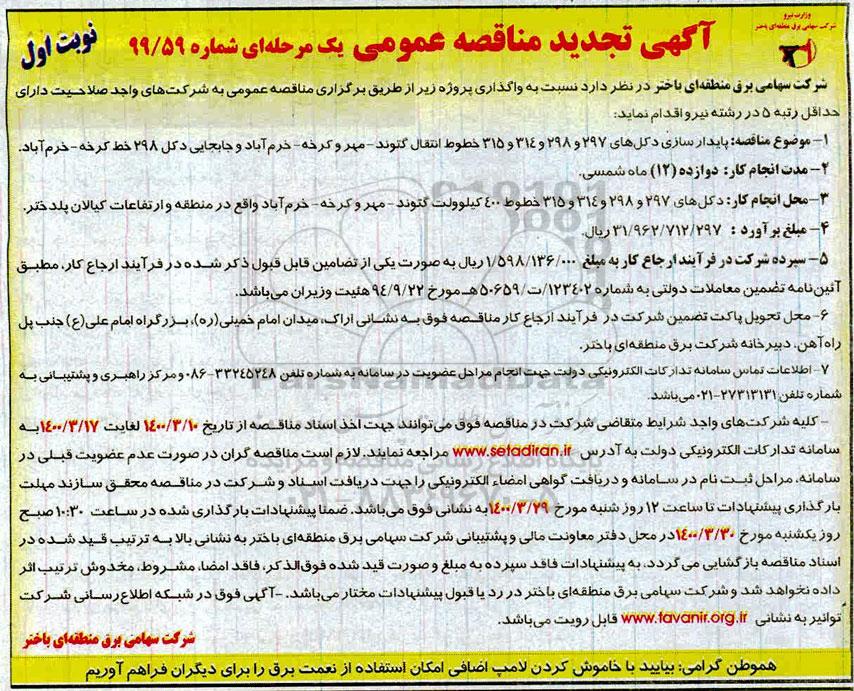 وزارت نیرو
شرکت سهامی برق منطقه‌ای باختر
آگهی تجدید مناقصه عمومی یک مرحله‌ای شماره ۹۹/۵۹
نوبت اول
شرکت سهامی برق منطقه‌ای باختر در نظر دارد نسبت به واگذاری پروژه زیر از طریق برگزاری مناقصه عمومی به شرکت‌های واجد صلاحیت دارای
حداقل رتبه ۵ در رشته نیرو اقدام نماید:
۱- موضوع مناقصه: پایدار سازی دکل‌های ۲۹۷ و ۲۹۸ و ۳۱۴ و ۳۱۵ خطوط انتقال گتوند - مهر و کرخه - خرم‌آباد و جابجایی دکل ۲۹۸ خط کرخه - خرم‌آباد.
۲- مدت انجام کار: دوازده (۱۲) ماه شمسی.
۳- محل انجام کار: دکل‌های ۲۹۷ و ۲۹۸ و ۳۱۴ و ۳۱۵ خطوط ۴۰۰ کیلوولت گتوند - مهر و کرخه - خرم‌آباد واقع در منطقه و ارتفاعات کیالان پلدختر.
۴- مبلغ برآورد : ۳۱/۹۶۲/۷۱۲/۲۹۷ ریال.
۵- سپرده شرکت در فرآیند ارجاع کار به مبلغ ۱/۵۹۸/۱۳۶/۰۰۰ ریال به صورت یکی از تضامین قابل قبول ذکر شده در فرآیند ارجاع کار، مطبق
آئین‌نامه تضمین معاملات دولتی به شماره ۱۲۳۴۰۲/ت/۵۰۶۵۹هـ مورخ ۹۴/۹/۲۲ هئیت وزیران می‌باشد.
۶- محل تحویل پاکت تضمین شرکت در فرآیند ارجاع کار مناقصه فوق به نشانی اراک، میدان امام خمینی(ره)، بزرگراه امام علی(ع) جنب پل
راه‌آهن، دبیرخانه شرکت برق منطقه‌ای باختر.
۷- اطلاعات تماس سامانه تدارکات الکترونیکی دولت جهت انجام مراحل عضویت در سامانه به شماره تلفن ۳۳۲۴۵۲۴۸-۰۸۶ و مرکز راهبری و پشتیبانی به
شماره تلفن ۲۷۳۱۳۱۳۱-۰۲۱ می‌باشد.
- کلیه شرکت‌های واجد شرایط متقاضی شرکت در مناقصه فوق می‌توانند جهت اخذ اسناد مناقصه از تاریخ ۱۴۰۰/۳/۱۰ لغایت ۱۴۰۰/۳/۱۷ به
سامانه تدارکات الکترونیکی دولت به آدرس www.setadiran.ir مراجعه نمایند. لازم است مناقصه گران در صورت عدم عضویت قبلی در
سامانه، مراحل ثبت نام در سامانه و دریافت گواهی امضاء الکترونیکی را جهت دریافت اسناد و شرکت در مناقصه محقق سازند مهلت
بارگذاری پیشنهادات تا ساعت ۱۲ روز شنبه مورخ ۱۴۰۰/۳/۲۹ به نشانی فوق می‌باشد. ضمنا پیشنهادات بارگذاری شده در ساعت ۱۰:۳۰ صبح
روز یکشنبه مورخ ۱۴۰۰/۳/۳۰ در محل دفتر معاونت مالی و پشتیبانی شرکت سهامی برق منطقه‌ای باختر به نشانی بالا به ترتیب قید شده در
اسناد مناقصه بازگشایی می‌گردد. به پیشنهادات فاقد سپرده به مبلغ و صورت قید شده فوق‌الذکر، فاقد امضا، مشروط، مخدوش ترتیب اثر
داده نخواهد شد و شرکت سهامی برق منطقه‌ای باختر در رد یا قبول پیشنهادات مختار می‌باشد. - آگهی فوق در شبکه اطلاع‌رسانی شرکت
توانیر به نشانی www.tavanir.org.ir قابل رویت می‌باشد.
شرکت سهامی برق منطقه‌ای باختر
هموطن گرامی: بیایید با خاموش کردن لامپ اضافی امکان استفاده از نعمت برق را برای دیگران فراهم آوریم